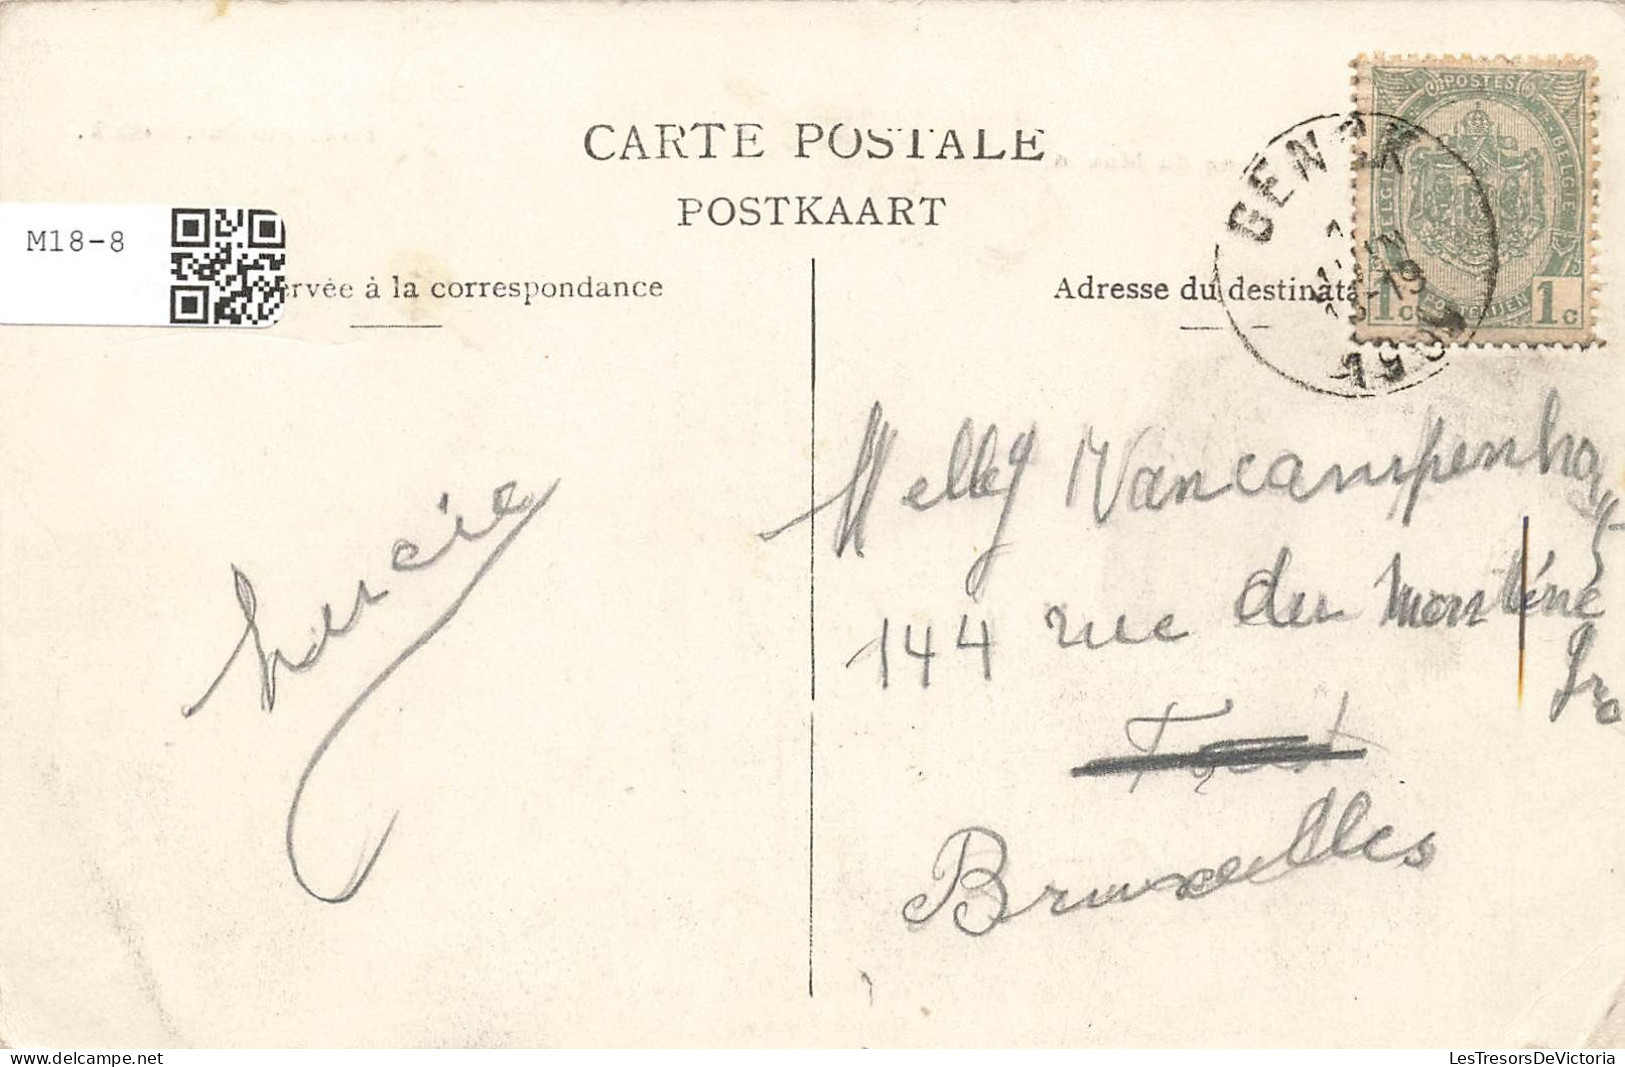 CARTE POSTALE
POSTKAART
M18-8
ervée à la correspondance
Adresse du destinata
POSTES
BELGIE
1c
1c
GENCK
Lucie
Melley Vancampenho
144 rue du Monténé
gro
Bruxelles
delcampe.net
LesTresorsDeVictoria